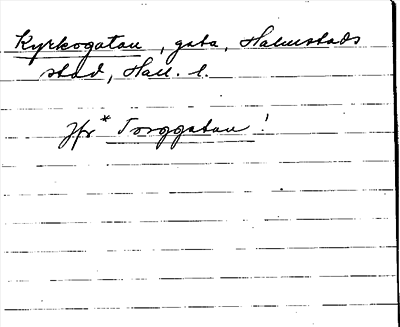 Kyrkogatan, gata, Halmstads
stad, Hall. l.
Jfr *Torggatan!